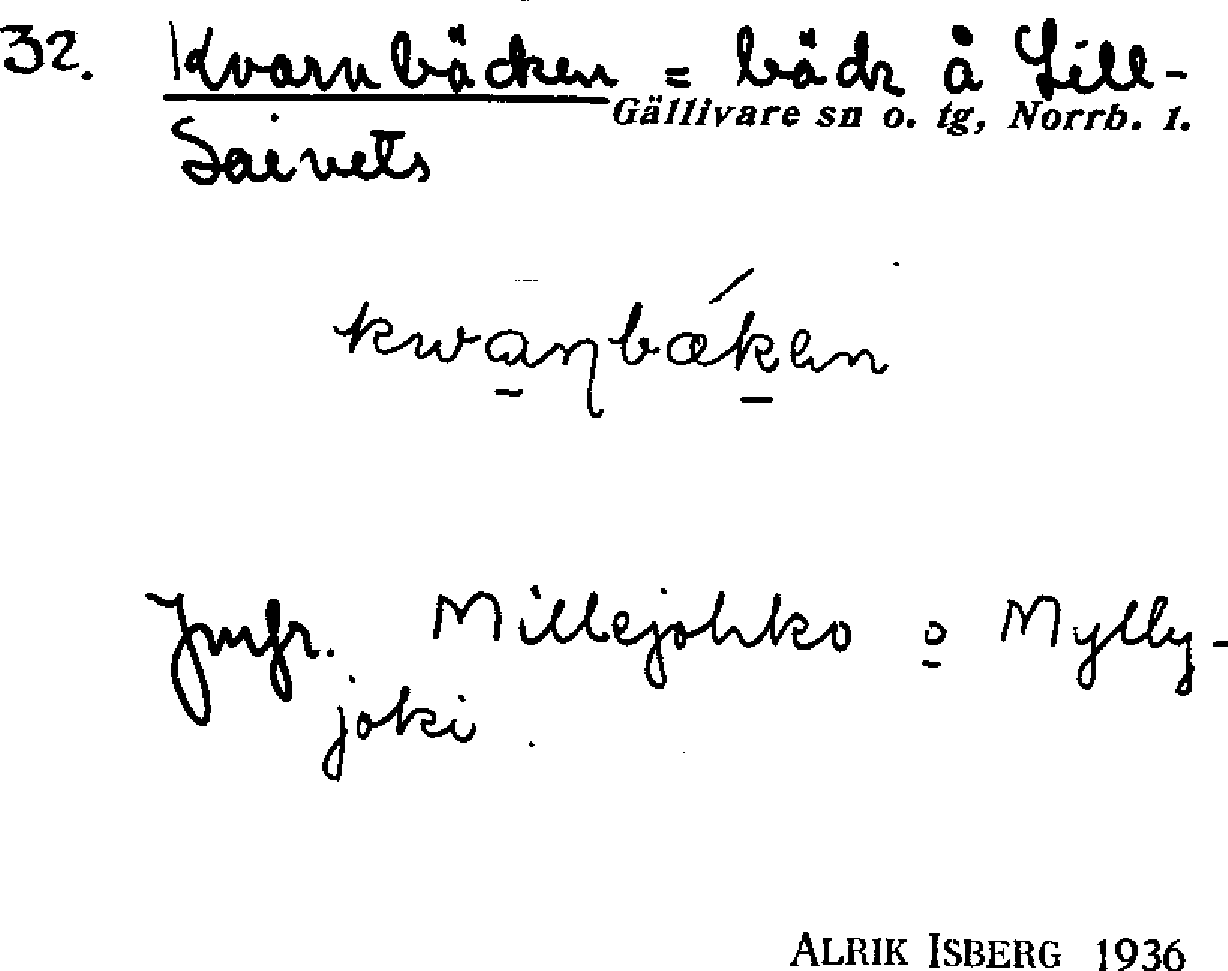 32. Kvarnbäcken = bäck å Lill-
Gällivare sn o. tg, Norrb. l.
Saivets
kwaṇbæken
Jmfr. Millejohko o Mylly-
joki.
ALRIK ISBERG 1936